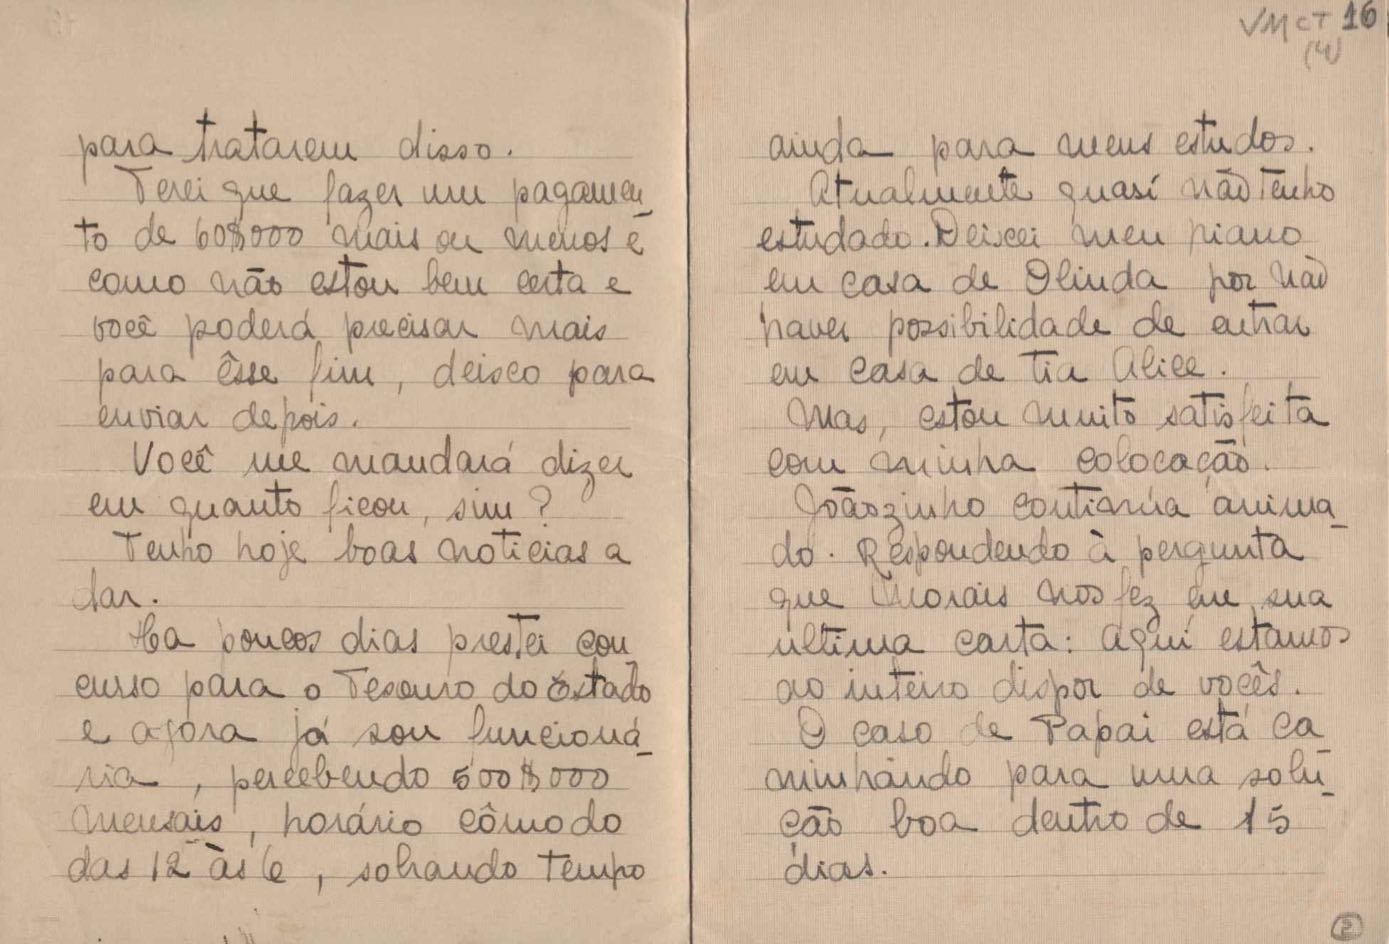 para tratarem disso.
Terei que fazer um pagamen_
to de 60$000 mais ou menos e
como não estou bem certa e
você poderá precisar mais
para êsse fim, deixo para
enviar depois.
Você me mandará dizer
em quanto ficou, sim?
Tenho hoje boas noticias a
dar.
Ha poucos dias prestei con
curso para o Tesouro do Estado
e agora já sou funcioná_
ria, percebendo 500$000
mensais, horário cômodo
das 12 às 6, sobrando tempo
VMCT 16
(4)
ainda para meus estudos.
Atualmente quasí não tenho
estudado. Deixei meu piano
em casa de Olinda por não
haver possibilidade de entrar
em casa de tia Alice.
Mas, estou muito satisfeita
com minha colocação.
Joãozinho continúa anima_
do. Respondendo à pergunta
que Morais nos fez em sua
ultima carta: Aquí estamos
ao inteiro dispor de vocês.
O caso de Papai está ca
minhando para uma solu_
ção boa dentro de 15
dias.
2